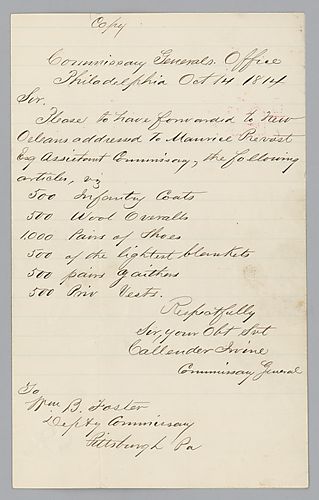 Copy
Commissary Generals Office
Philadelphia Oct 14 1814
Sir.
Please to have forwarded to New
Orleans addressed to Maurice Prevost
Esq Assistant Commissary, the following
articles, viz
500 Infantry Coats
500 Wool Overalls
1.000 Pairs of Shoes
500 of the lightest blankets
500 pairs gaithers
500 Priv Vests.
Respectfully
Sir, your Obt Svt
Callender Irvine
Commissary General
To
Wm B. Foster
Depty Commissary
Pittsburgh Pa